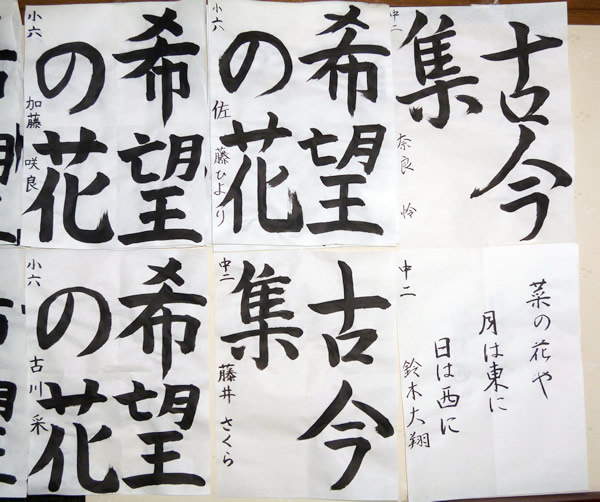 小六
希望
の花
加藤 咲良
小六
希望
の花
佐藤ひより
中二
古今
集
奈良 怜
小六
希望
の花
古川 采
中二
古今
集
藤井 さくら
中二
菜の花や
月は東に
日は西に
鈴木大翔